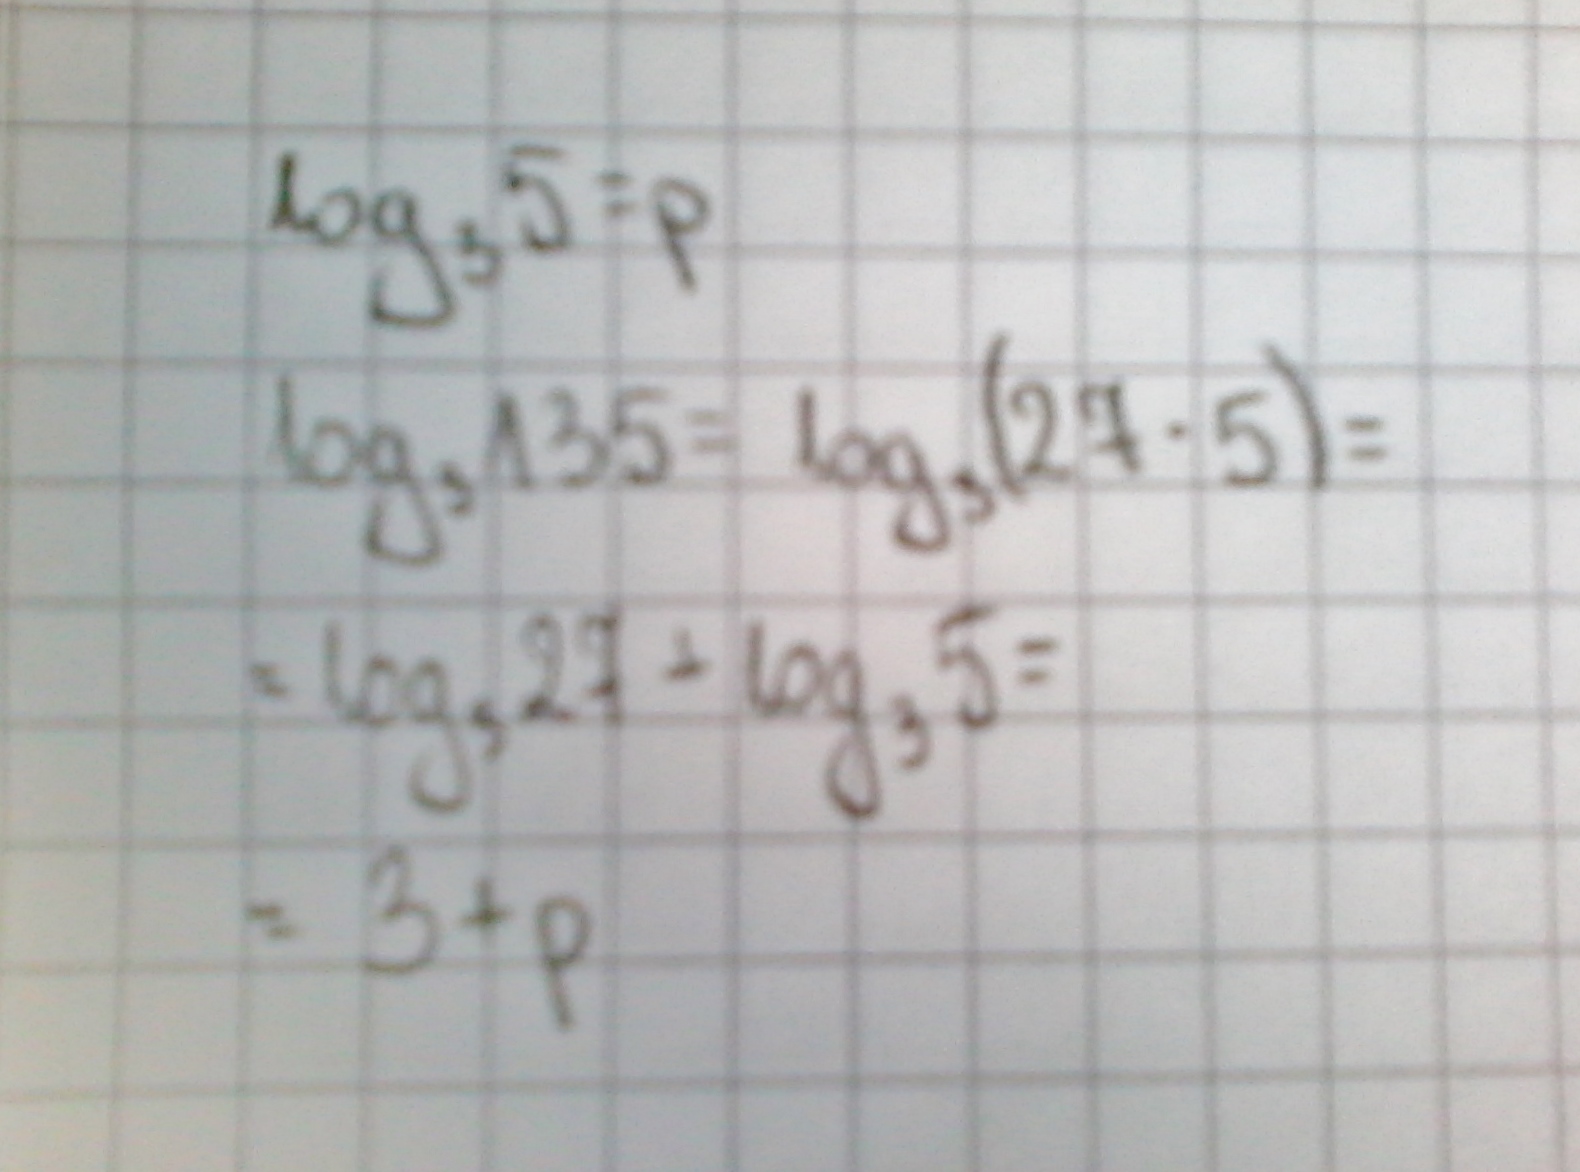 log₃5=p
log₃135= log₃(27·5)=
= log₃27 + log₃5=
= 3+p